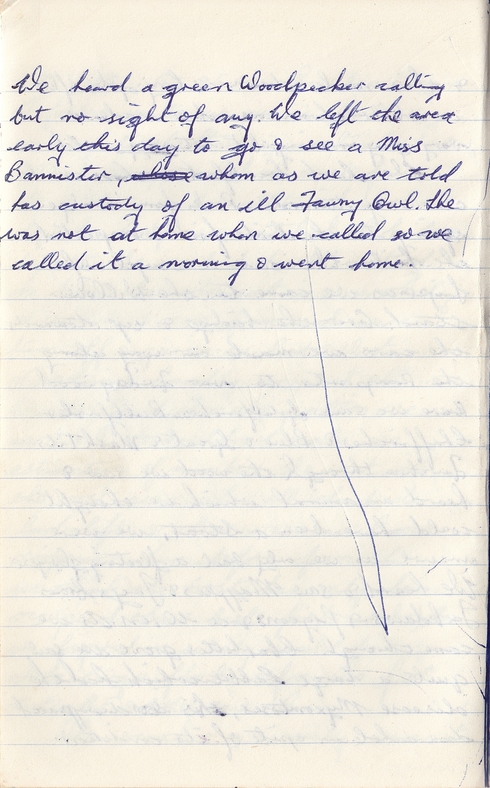 We heard a green Woodpecker calling
but no sight of any. We left the area
early this day to go & see a Miss
Bannister, whose whom as we are told
has custody of an ill Tawny Owl. She
was not at home when we called so we
called it a morning & went home.